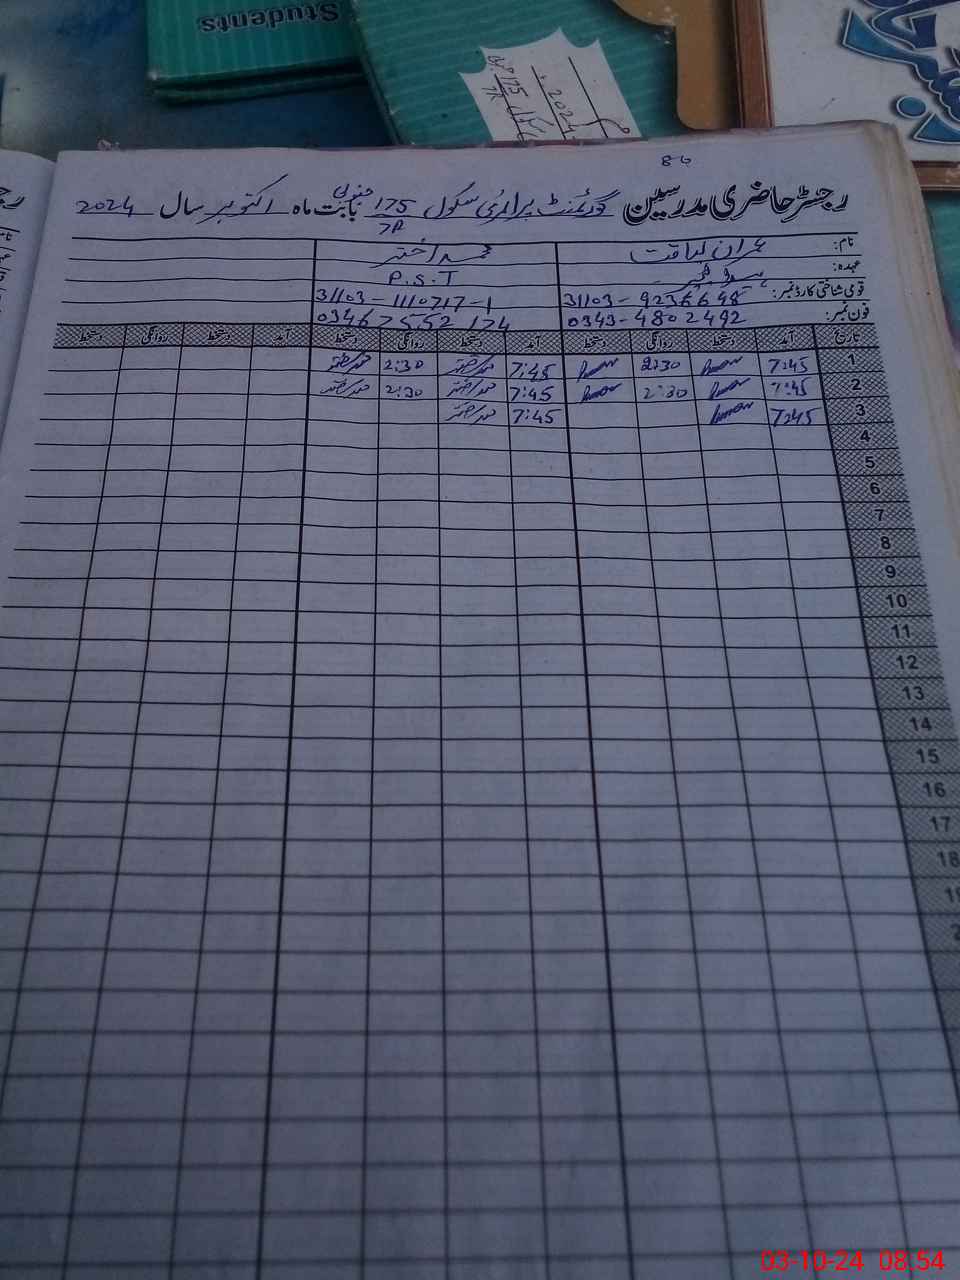 Students
2024
175
7R
86
رجسٹر حاضری مدرسین گورنمنٹ پرائمری سکول 175/7R جنوبی بابت ماہ اکتوبر سال 2024
نام: عمران لیاقت محمد اختر
عہدہ: P.S.T
قومی شناختی کارڈ نمبر: 31103-9236648 31103-1110717-1
فون نمبر: 0343-4802492 03467552174
تاریخ آمد دستخط روانگی دستخط آمد دستخط روانگی دستخط آمد دستخط روانگی دستخط
1 7:45 2:30 7:45 محمد اختر 2:30 محمد اختر
2 7:45 2:30 7:45 محمد اختر 2:30 محمد اختر
3 7:45 7:45 محمد اختر
4
5
6
7
8
9
10
11
12
13
14
15
16
17
18
03-10-24 08.54